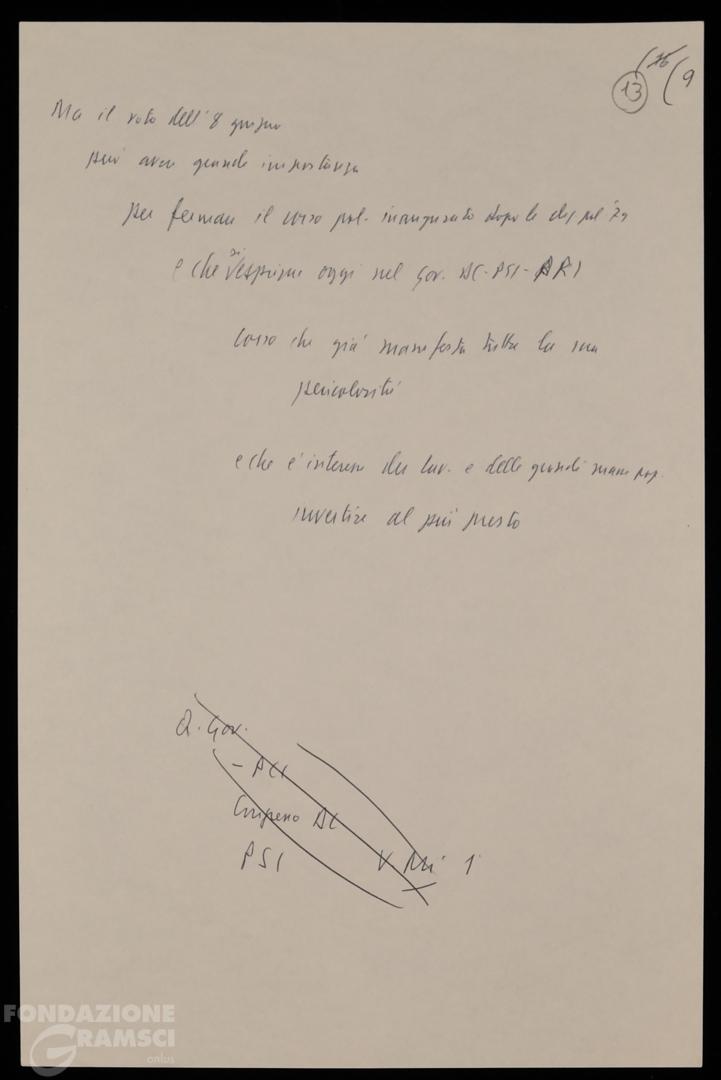 16
13
9
Ma il voto dell'8 giugno
può avere grande importanza
per fermare il corso pol. inaugurato dopo le el. pol '79
e che si esprime oggi nel gov. DC-PSI-PRI
corso che già manifesta tutta la sua
pericolosità
e che è interesse dei lav. e delle grandi masse pop.
invertire al più presto
Q. Gov.
- PCI
Congresso DC
PSI
V
1
FONDAZIONE
GRAMSCI
onlus